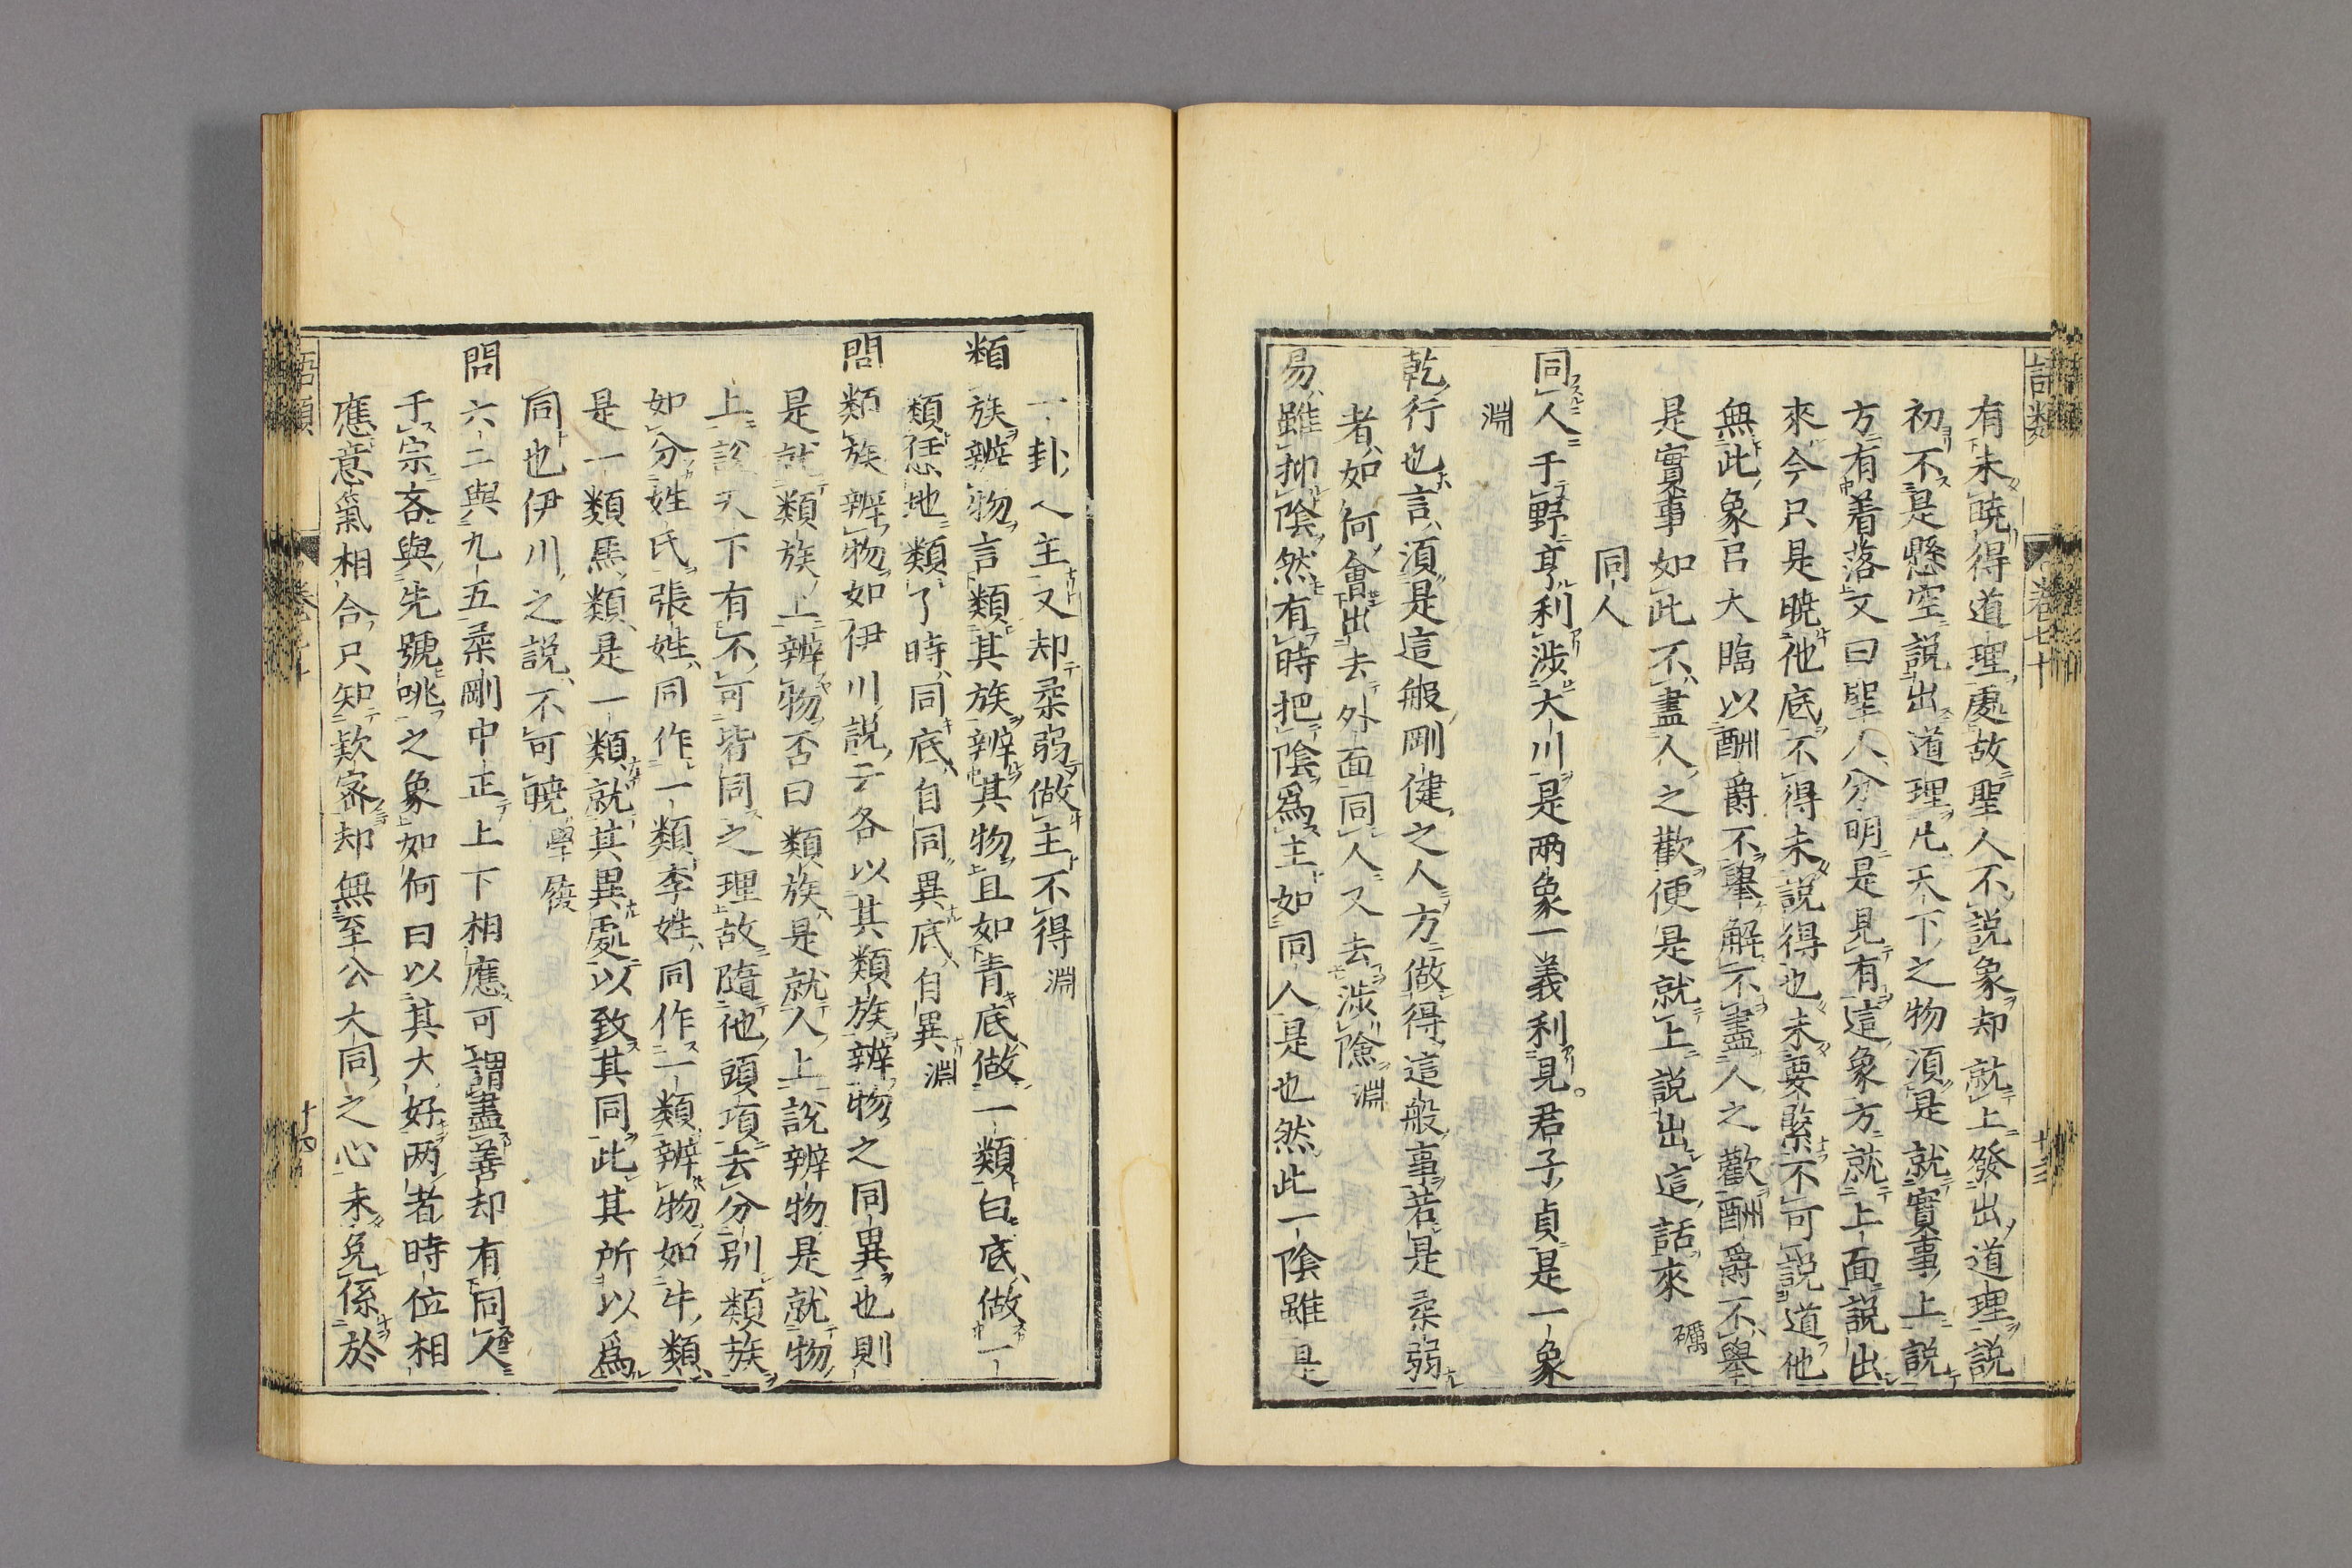 語類 卷七十 十三
有未曉得道理處故聖人不說象却就上發出道理說
初不是懸空說出道理凡天下之物須是就實事上說
方有着落又曰聖人分明是見有這象方就上面說出
來今只是曉他底不得未說得也未要緊不可說道他
無此象呂大臨以酬爵不舉解不盡人之歡酬爵不舉
是實事如此不盡人之歡便是就上說出這話來 礪
同人
同人于野亨利涉大川是兩象一義利見君子貞是一象
淵
乾行也言須是這般剛健之人方做得這般事若是柔弱
者如何會出去外面同人又去涉險 淵
易雖抑陰然有時把陰爲主如同人是也然此一陰雖是
一卦人主又却柔弱做主不得 淵
類族辨物言類其族辨其物且如青底做一類白底做一
類恁地類了時同底自同異底自異 淵
問類族辨物如伊川說云各以其類族辨物之同異也則
是就類族上辨物否曰類族是就人上說辨物是就物
上說天下有不可皆同之理故隨他頭項去分別類族
如分姓氏張姓同作一類李姓同作一類辨物如牛類
是一類馬類是一類就其異處以致其同此其所以爲
同也伊川之說不可曉 學履
問六二與九五柔剛中正上下相應可謂盡善却有同人
于宗吝與先號咷之象如何曰以其大好兩者時位相
應意氣相合只知欵密却無至公大同之心未免係於
語類 卷七十 十四